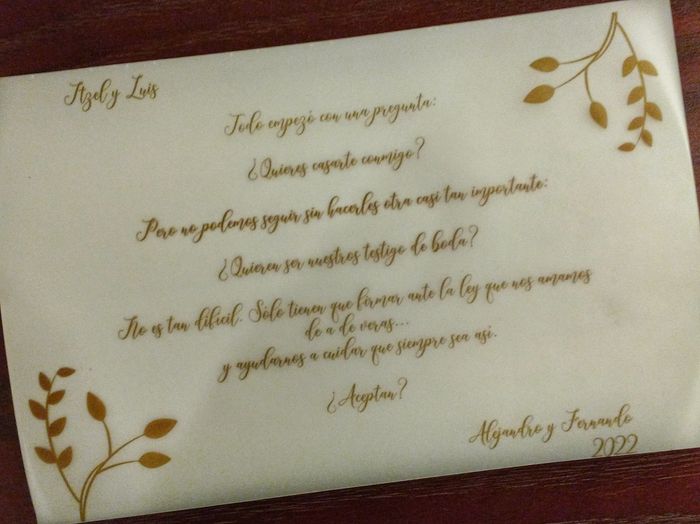 Itzel y Luis
Todo empezó con una pregunta:
¿Quieres casarte conmigo?
Pero no podemos seguir sin hacerles otra casi tan importante:
¿Quieren ser nuestros testigo de boda?
No es tan difícil. Solo tienen que firmar ante la ley que nos amamos
de a de veras...
y ayudarnos a cuidar que siempre sea así.
¿Aceptan?
Alejandro y Fernando
2022